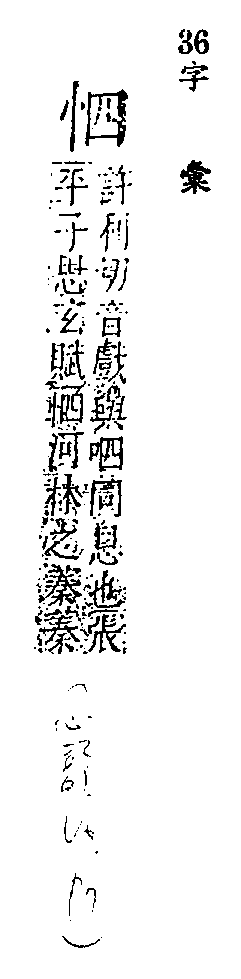 36字彙
怬
許利切音戲與呬同息也張
平子思玄賦怬河林之蓁蓁